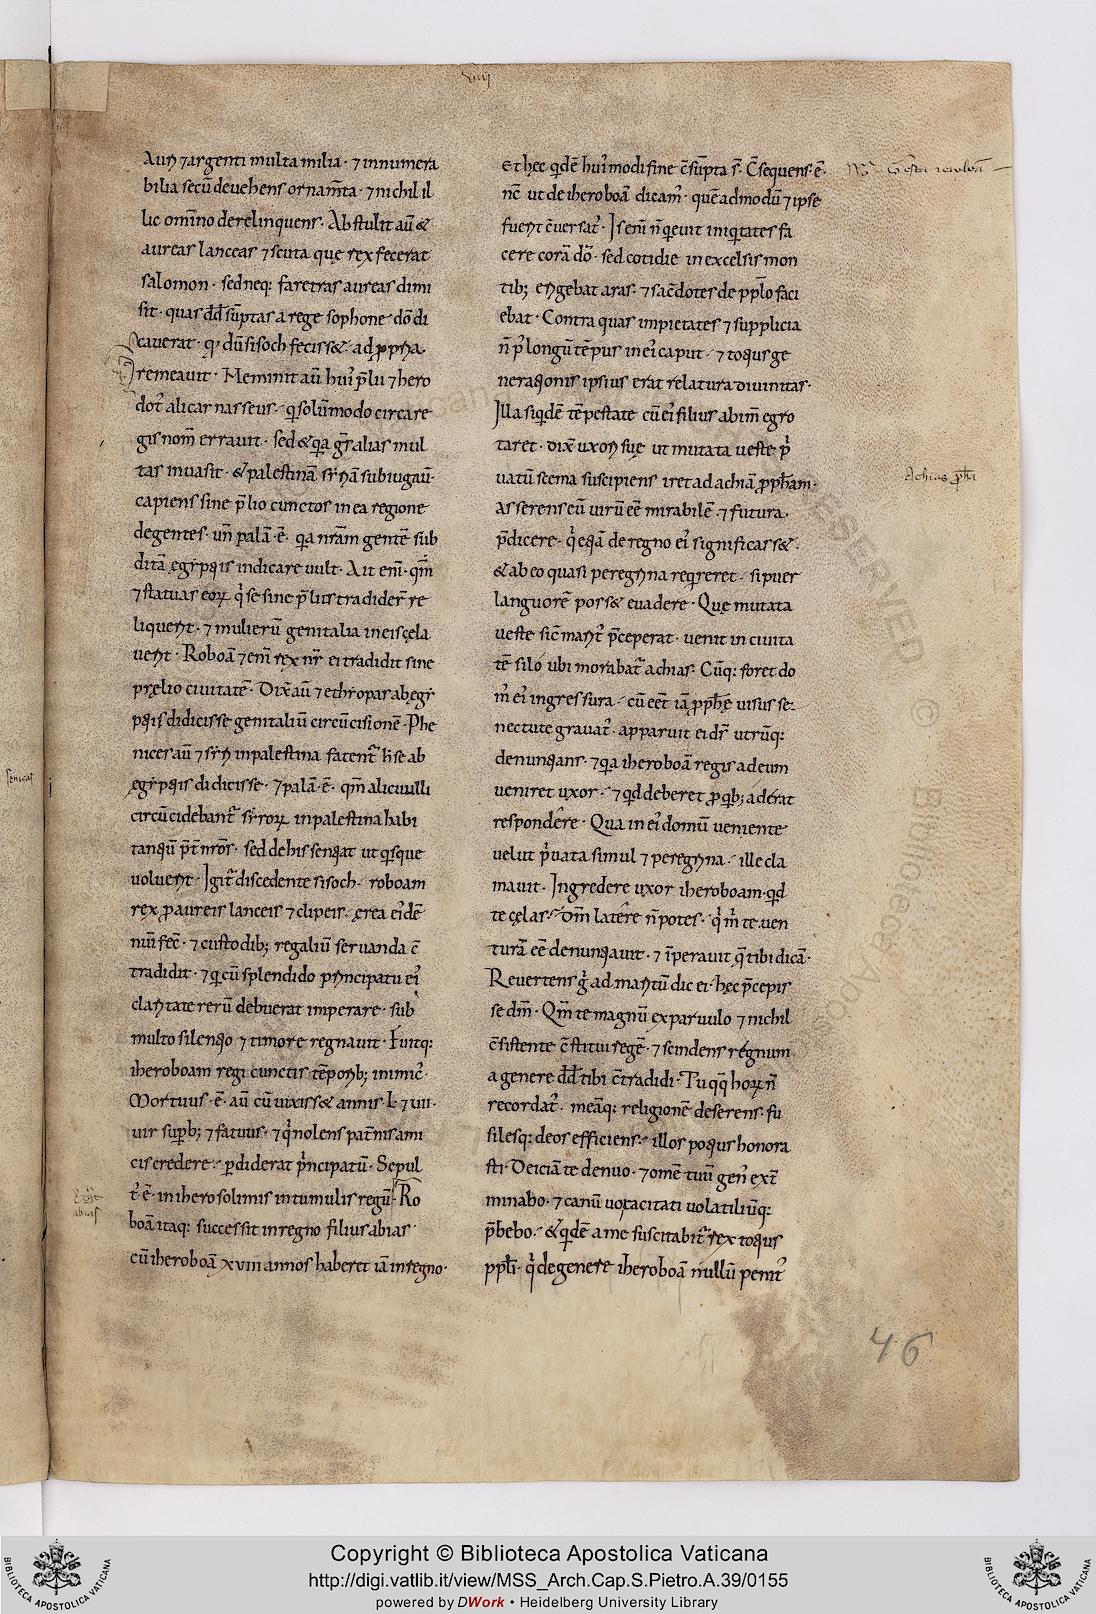 viiij
Auri ⁊ argenti multa milia · ⁊ innumera
bilia secū deuehens ornam̄ta · ⁊ nichil il
lic om̄ino derelinquens · Abstulit aū &
aureas lanceas ⁊ scuta quę rex fecerat
salomon · sed neq; faretras aureas dimi
sit · quas dd̄ sūptas a rege sophone dō di
cauerat · qd̓ dū sisoch feciss& · ad ꝓpria
remeauit · Meminit aū hui᾽ p̄lii ⁊ hero
dot᾽ alicarnasseus · q̓ solūmodo circa re
gis nom̄ errauit · sed & q̓a gr̄alias mul
tas inuasit · & palestinā sȳriā subiugau̅ ·
capiens sine p̄lio cunctos in ea regione
degentes · un̄ palā ē · q̓a nr̄am gentē sub
ditā ęgyptiis indicare uult · Ait eni̅ · qm̄
⁊ statuas eoꝝ q̓ se sine p̄liis tradider̄ re
liquerit · ⁊ mulierū genitalia in eis cęla
uerit · Roboā ⁊eni̅ rex nr̄ ei tradidit sine
pręlio ciuitatē · Dix̄ aū ⁊ ethyopas ab ęgy
ptiis didicisse genitaliū circūcisionē · Phe
nices aū ⁊ syri in palestina fatent̄ h̄ se ab
ęgyptiis didicisse · ⁊ palā ē · qm̄ alicui illi
circūcidebant̄ syroꝝ in palestina habi
tantiū p̄t̄ nr̄os · sed de his sentiat ut q̓sque
voluerit · Igit̄ discedente sisoch · roboam
rex ꝓ aureis lanceis ⁊ clipeis · ęrea ei᾽dē
nūi fec̄ · ⁊ custodib; regaliū seruanda c̄
tradidit · ⁊ q̓ cū splendido principatu ei᾽
claritate rerū debuerat imperare · sub
multo silentio ⁊ timore regnauit · Fuitq;
iheroboam regi cunctis tēporib; inimic᾽ ·
Mortuus · ē · aū cū uixiss& annis · L · ⁊ vii ·
uir supb; ⁊ fatuus · ⁊ q̓ nolens pat̄nis ami
cis credere · pdiderat p̓ncipatū · Sepul
t᾽ ē · in iherosolimis in tumulis regū · Ro
boā itaq; successit in regno filius abias
cū iheroboā xviii annos haberet iā in regno ·
Et hęc q̓dē hui᾽modi fine c̄sūpta s̄ · C̄sequens · ē ·
nc̄ ut de iheroboā dicam᾽ · quēadmodū ⁊ ipse
fuerit c̄uersat᾽ · Is eni̅ n̄ q̓euit iniq̓tates fa
cere corā dō · sed cotidie in excelsis mon
tib; erigebat aras · ⁊ sac̄dotes de pp̄lo faci
ebat · Contra quas impietates ⁊ supplicia
n̄ p᾽ longū tēpus in ei᾽ caput · ⁊ toti᾽ ge
nerationis ipsius erat relatura diuinitas ·
Illa siq̓dē tēpestate cū ei᾽ filius abim egro
taret · dix̄ uxori suę ut mutata ueste p̓
uatū scema suscipiens iret ad achiā ꝓph̄am ·
asserens eū uirū eē mirabilē · ⁊ futura
p̄dicere · q̓ & iā de regno ei᾽ significass& ·
& ab eo quasi peregrina req̓reret · si puer
languorē poss& euadere · Quę mutata
ueste sic̄ marit᾽ p̄ceperat · uenit in ciuita
tē silo ubi morabat̄ achias · Cūq; foret do
m̄ ei᾽ ingressura · cū eēt iā ꝓph̄ę uisus se
nectute grauat᾽ · apparuit ei dr̄ utrūq;
denuntians · ⁊ q̓a iheroboā regis ad eum
ueniret uxor · ⁊ q̓d deberet ꝓ q̓b; aderat
respondēre · Qua in ei᾽ domū ueniente
uelut p̓uata simul ⁊ peregrina · ille cla
mauit · Ingredere uxor iheroboam · q̓d
te cęlas · dm̄ latēre n̄ potes · q̓ m̓ te uen
turā eē denuntiauit · ⁊ īperauit q̄ tibi dicā ·
Reuertens g̓ ad maritū dic ei · hęc p̄cepis
se dm̄ · Qm̄ te magnū ex paruulo ⁊ nichil
c̄sistente c̄stitui regē · ⁊ scindens regnum
a genere dd̄ tibi c̄tradidi · Tu qq̓ hoꝝ n̄
recordat᾽ · meāq; religionē deserens · fu
silesq; deos efficiens · illos potius honora
sti · Deiciā te denuo · ⁊ om̄e tuū gen᾽ ext̄
minabo · ⁊ canū uoracitati uolatiliūq;
p̄bebo · & q̓dē a me suscitabit̄ rex totius
pp̄li · q̓ de genere iheroboā nullū penit᾽
Achias ꝓph̄a
abias
46
Copyright © Biblioteca Apostolica Vaticana
http://digi.vatlib.it/view/MSS_Arch.Cap.S.Pietro.A.39/0155
powered by DWork • Heidelberg University Library
BIBLIOTECA APOSTOLICA VATICANA
BIBLIOTECA APOSTOLICA VATICANA